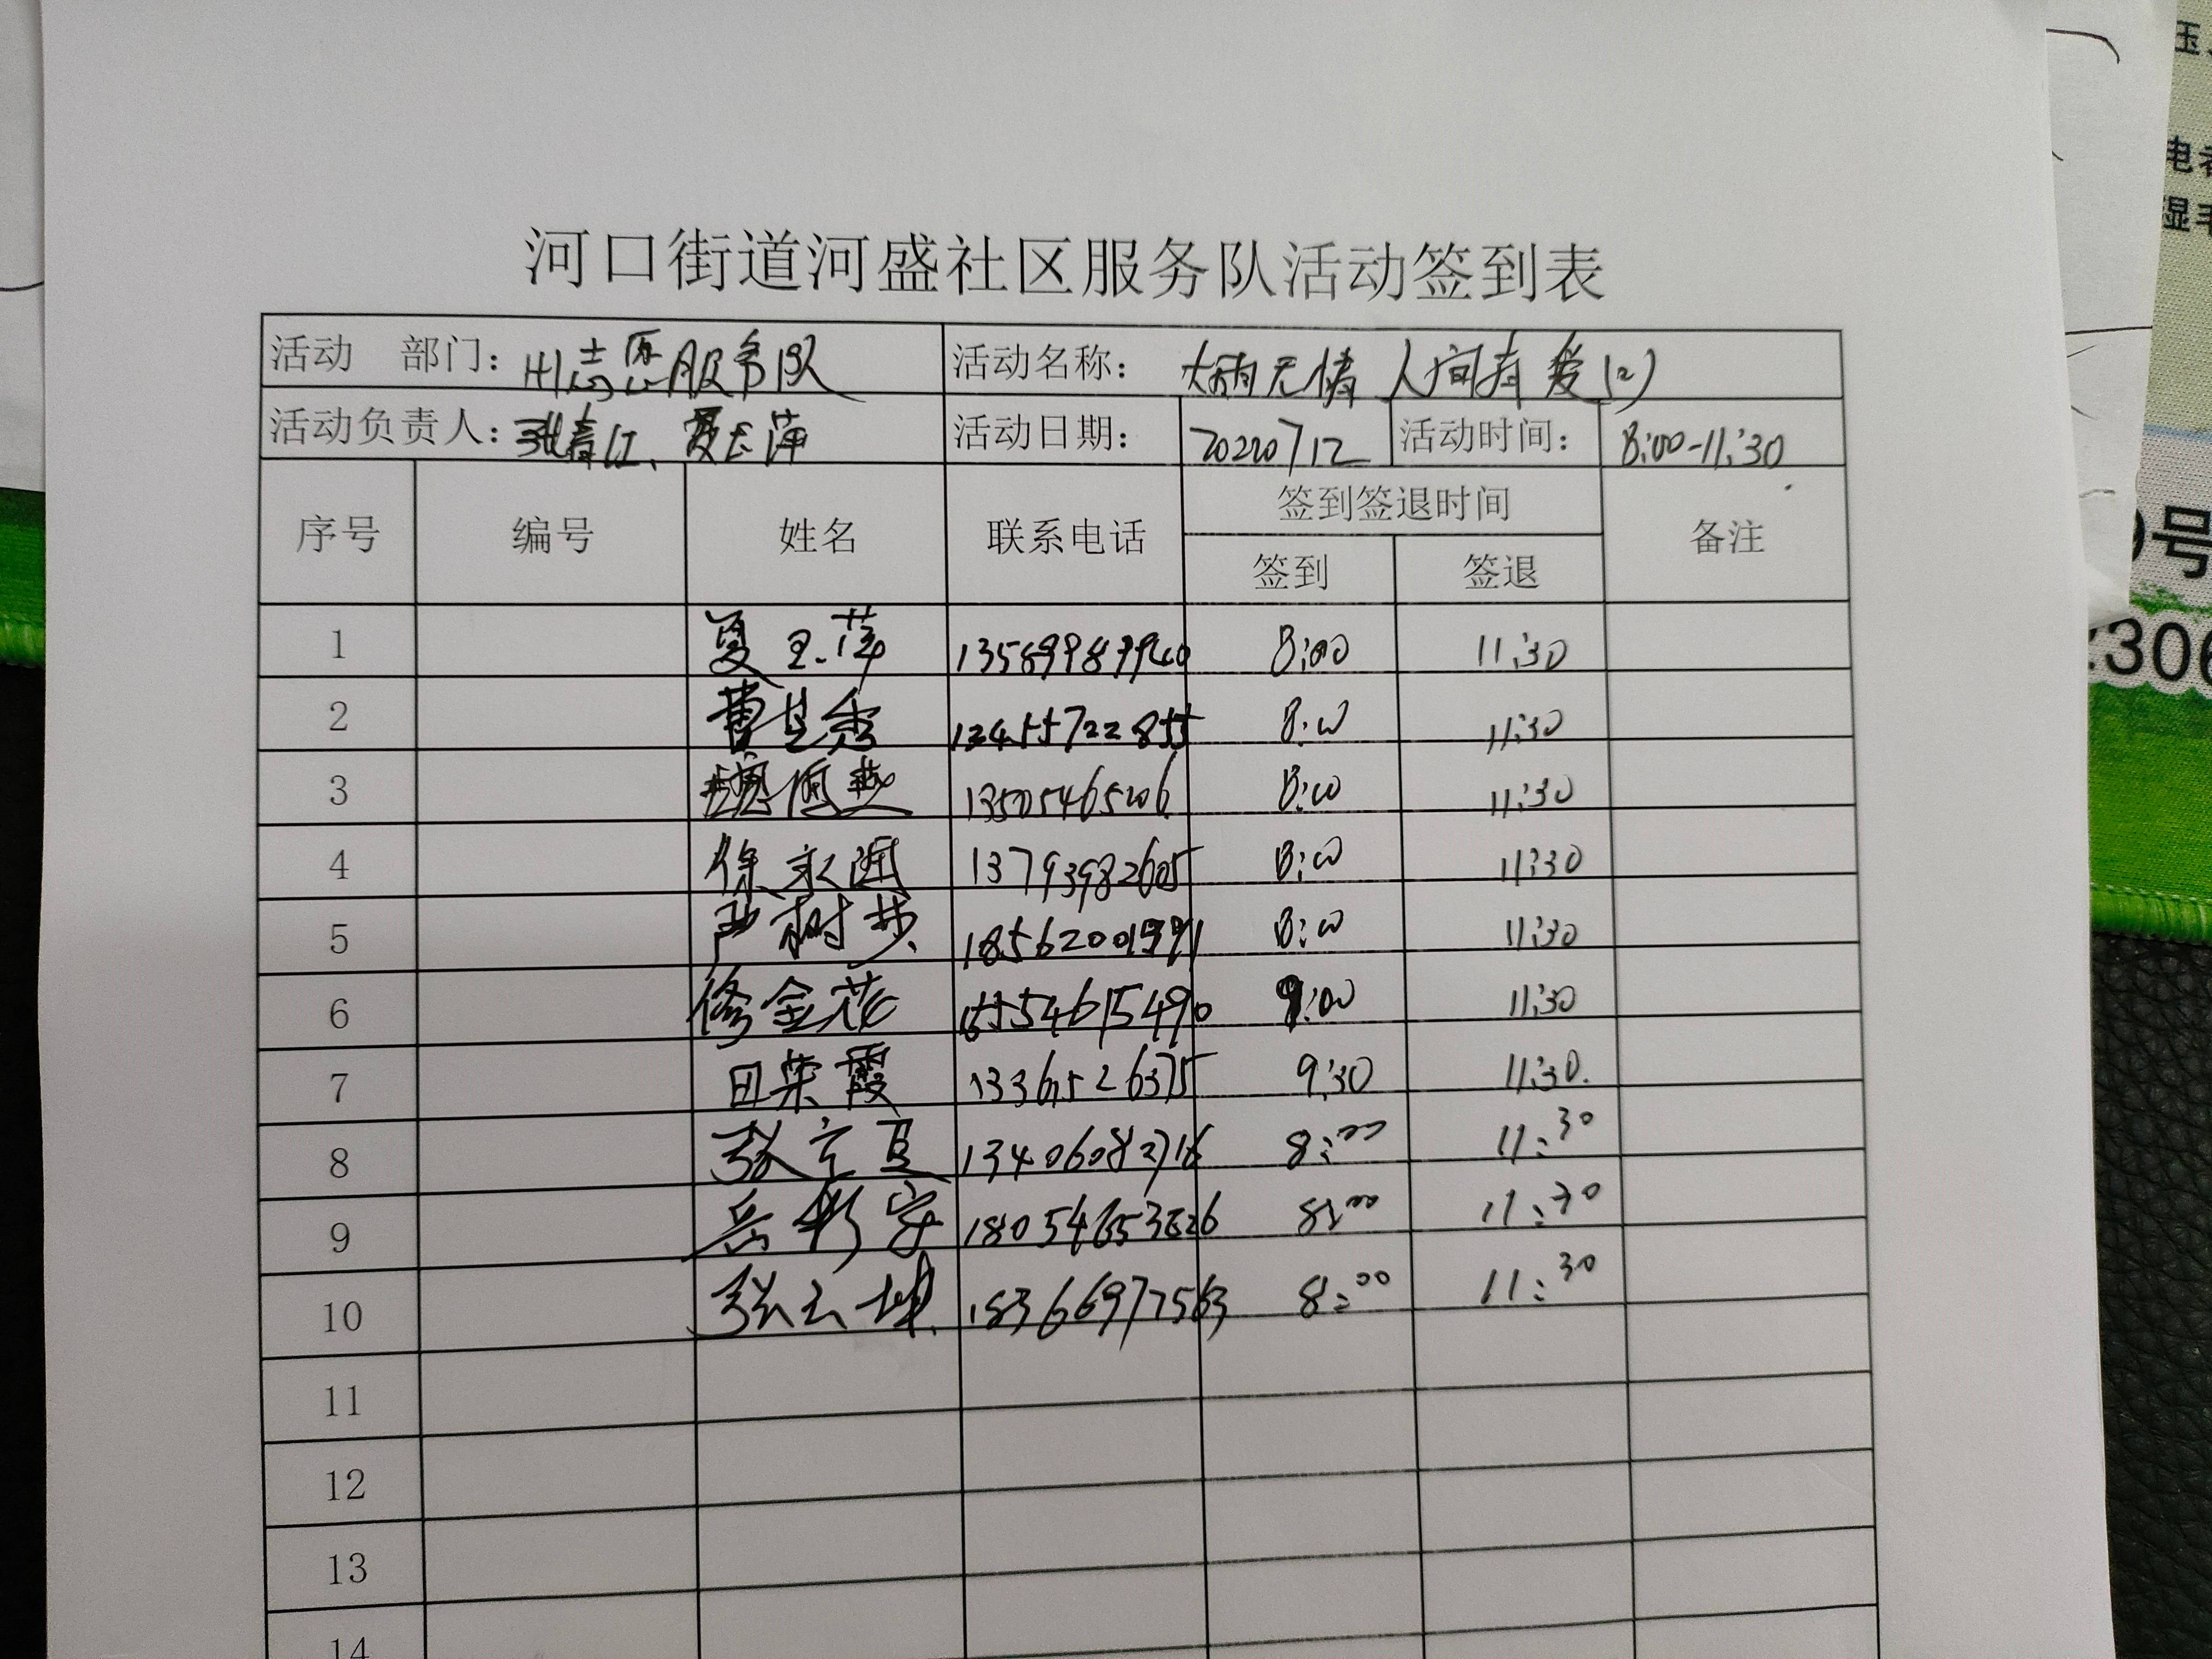 河口街道河盛社区服务队活动签到表
活动 部门: 志愿服务队 活动名称: 大病无情 人间有爱(2)
活动负责人: 张春江、夏玉萍 活动日期: 20220712 活动时间: 8:00-11:30
序号 编号 姓名 联系电话 签到签退时间 备注
签到 签退
1 夏玉萍 13589989940 8:00 11:30
2 8:00 11:30
3 13505465206 8:00 11:30
4 徐永国 13793982605 8:00 11:30
5 严树梦 18562001991 8:00 11:30
6 修金花 15554615490 9:00 11:30
7 田荣霞 13361526375 9:30 11:30.
8 13406082716 8:00 11:30
9 岳彩 18054653626 8:00 11:30
10 张云坤 18366977563 8:00 11:30
11
12
13
14
玉
电
湿
号
306